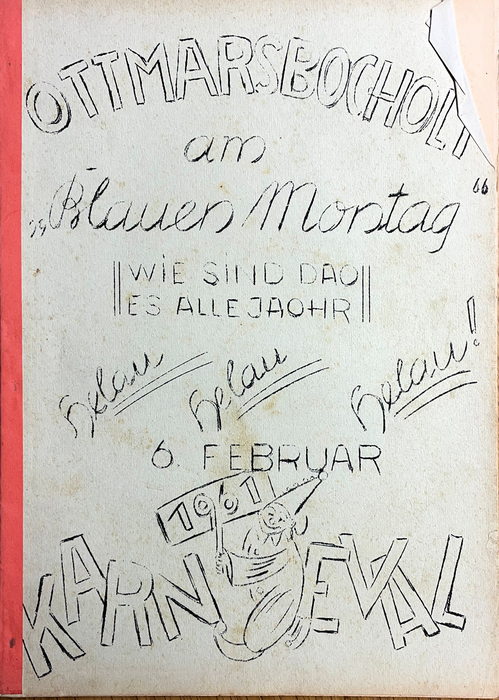 OTTMARSBOCHOLT
am
„Blauen Montag“
WIE SIND DAO
ES ALLE JAOHR
Helau Helau Helau!
6. FEBRUAR
1961
KARNEVAL